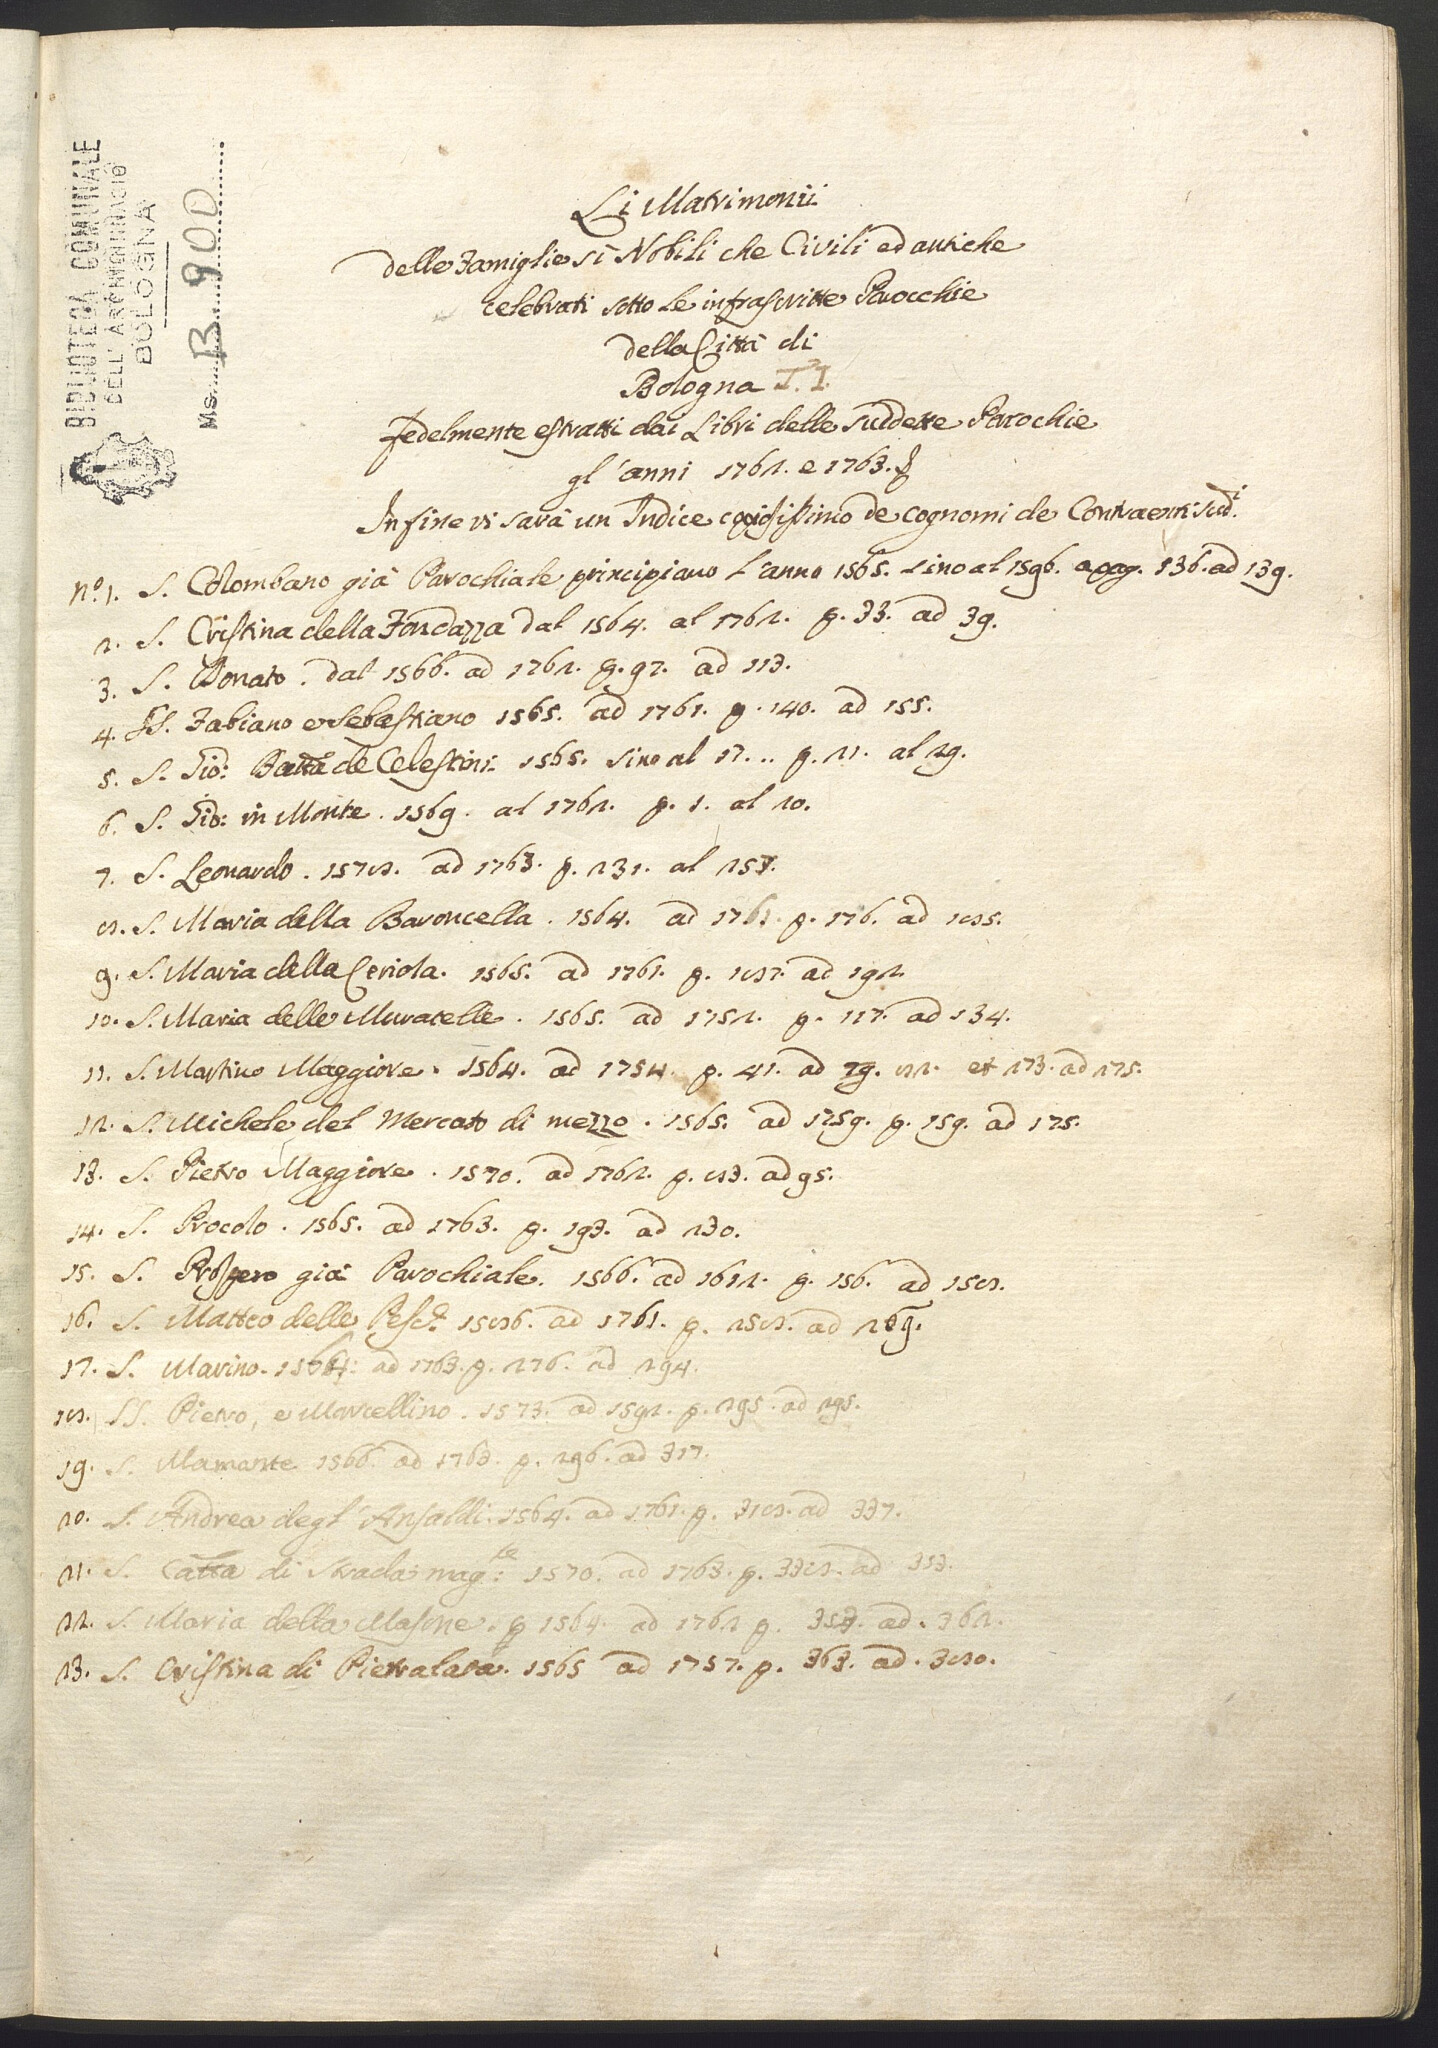 BIBLIOTECA COMUNALE
DELL'ARCHIGINNASIO
BOLOGNA
Ms. B. 900
Li Matrimonii
delle Famiglie sì Nobili che Civili ed antiche
celebrati sotto le infrascritte Parocchie
della Città di
Bologna T. I.
fedelmente estratti dai Libri delle suddette Parochie
gl'anni 1762. e 1763.
In fine vi sarà un Indice copiosissimo de cognomi de Contraenti sudi.
No. 1. S. Colombano già Parochiale principiano l'anno 1565. sino al 1596. a pag. 136. ad 139.
2. S. Cristina della Fondazza dal 1564. al 1762. p. 33. ad 39.
3. S. Donato. dal 1566. ad 1762. p. 97. ad 113.
4. SS. Fabiano e Sebastiano 1565. ad 1761. p. 140. ad 155.
5. S. Gio: Batta de Celestini 1565. sino al 17... p. 21. al 29.
6. S. Gio: in Monte. 1569. al 1762. p. 1. al 20.
7. S. Leonardo. 1578. ad 1763. p. 231. al 257.
8. S. Maria della Baroncella. 1564. ad 1761. p. 176. ad 185.
9. S. Maria della Ceriola. 1565. ad 1761. p. 187. ad 192.
10. S. Maria delle Muratelle. 1565. ad 1752. p. 117. ad 134.
11. S. Martino Maggiore. 1564. ad 1754. p. 41. ad 79. 82. et 273. ad 275.
12. S. Michele del Mercato di mezzo. 1565. ad 1759. p. 159. ad 175.
13. S. Pietro Maggiore. 1570. ad 1762. p. 83. ad 95.
14. S. Procolo. 1565. ad 1763. p. 193. ad 230.
15. S. Prospero già Parochiale. 1566. ad 1612. p. 156. ad 158.
16. S. Matteo delle Pesc. 1586. ad 1761. p. 258. ad 269.
17. S. Marino. 1564: ad 1763. p. 276. ad 294.
18. SS. Pietro, e Marcellino. 1573. ad 1592. p. 295. ad 295.
19. S. Mamante 1566. ad 1763. p. 296. ad 317.
20. S. Andrea degl'Ansaldi. 1564. ad 1761. p. 318. ad 337.
21. S. Catta di Strada magre: 1570. ad 1763. p. 338. ad 353.
22. S. Maria della Masone. p 1564. ad 1762 p. 354. ad. 362.
23. S. Cristina di Pietralata. 1565 ad 1757. p. 363. ad. 380.